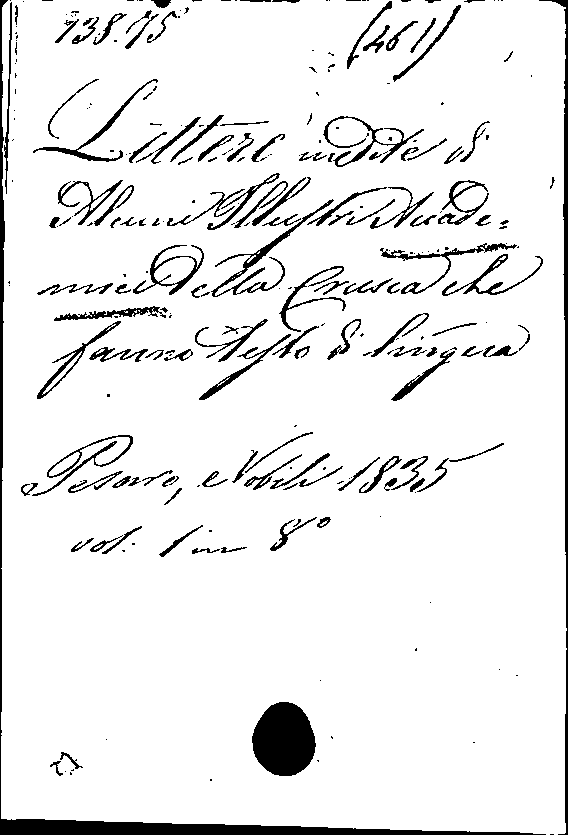 138.75 (461)
Lettere inedite di
Alcuni Illustri Accade=
mici della Crusca che
fanno testo di lingua
Pesaro, Nobili 1835
vol. 1 in 8°